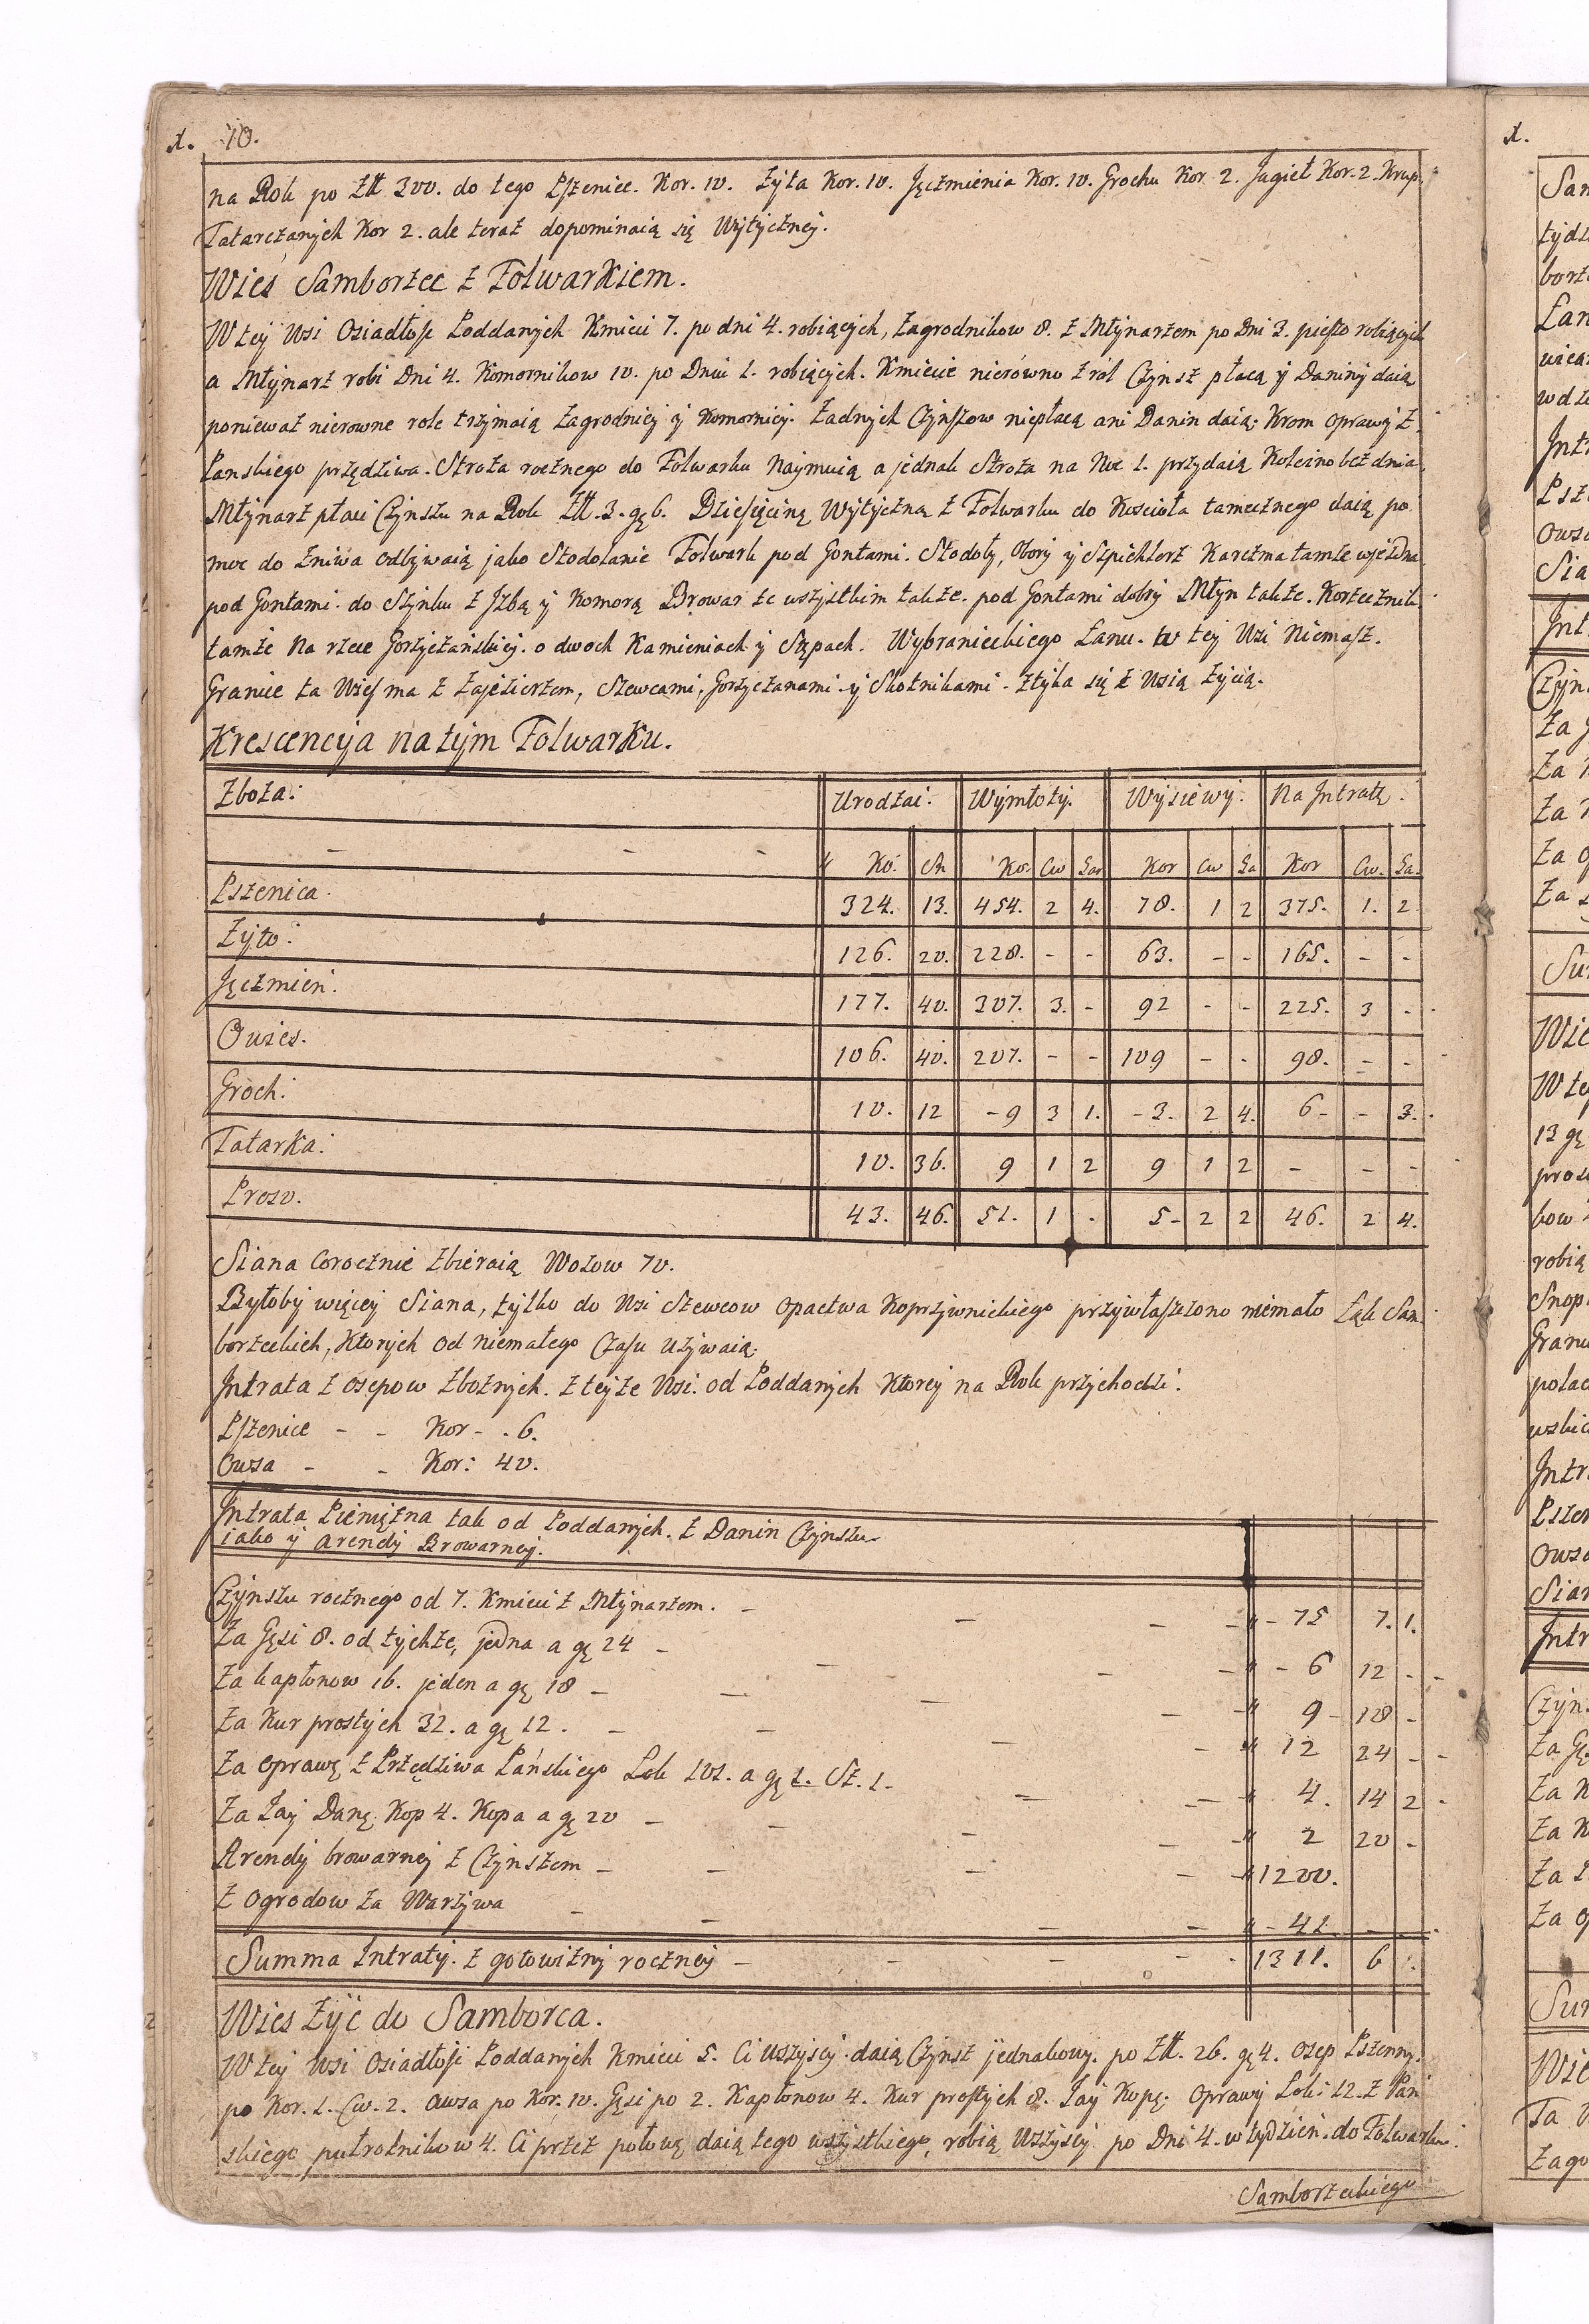 A. 70.
na Rok po Złł 300. do tego Pszenice. Kor. 10. Zyta Kor. 10. Jęczmienia Kor. 10. Grochu Kor 2. Jagieł Kor. 2. Krup.
Tatarczanych Kor 2. ale teraz dopominaią się Wytyczney.
Wieś Samborzec z Folwarkiem.
W tey Wsi Osiadłość Poddanych Kmieci 7. po dni 4. robiących, Zagrodnikow 8. z Młynarzem po Dni 3. pieszo robiących
a Młynarz robi Dni 4. Komornikow 10. po Dniu 1. robiących. Kmiecie nierówno z ról Czynsz płacą y Daniny daią
poniewaz nierowne role trzymaią Zagrodnicy y Komornicy. Zadnych Czynszow niepłacą ani Danin daią. Krom oprawy z
Panskiego przędziwa. Stroza rocznego do Folwarku Naymuią a jednak Stroza na Noc 1. przydaią Koleino bez dnia
Młynarz płaci Czynszu na Rok Złł. 3. gę 6. Dziesięcinę Wytyczną z Folwarku do Koscioła tamecznego daią po
moc do zniwa odbywaią jako Stodolanie Folwark pod Gontami. Stodoły, Obory y Szpichlerz Karczma tamze wjezdna
pod Gontami. do Szynku z Jzbą y Komorą Browar ze wszystkim takze. pod Gontami dobry Młyn takze. Korzecznik
tamze na rzece Gorzyczańskiey. o dwoch Kamieniach y Stępach. Wybranieckiego Łanu. w tey Wsi Niemasz.
Granice ta Wieś ma z Zajezierzem, Szewcami, Gorzyczanami y Skotnikami. Ztyka się z Wsią Zycią.
Krescencya na tym Folwarku.
Zboza: Urodzai. Wymłoty. Wysiewy. Na Jntratę.
Ko. Sn Ko. Cw Gar Kor Cw Ga Kor Cw. Ga.
Pszenica. 324. 13. 454. 2 4. 78. 1 2 375. 1. 2
Zyto: 126. 20. 228. - - 63. - - 165. - -
Jęczmień. 177. 40. 307. 3. - 92 - - 225. 3 -
Owies. 106. 40. 207. - - 109 - - 98. - -
Groch: 10. 12 - 9 3 1. - 3. 2 4. 6 - - 3.
Tatarka: 10. 36. 9 1 2 9 1 2 - - -
Proso. 43. 46. 51. 1 - 5 - 2 2 46. 2 4.
Siana Corocznie zbieraią Wozow 70.
Byłoby więcey Siana, tylko do Wsi Szewcow Opactwa Koprzywnickiego przywłaszczono niemało Łąk Sam
borzeckich, Ktorych od niemałego Czasu uzywaią.
Jntrata z osepow zboznych. z teyze Wsi. od Poddanych Ktorey na Rok przychodzi.
Pszenice - - Kor - . 6.
Owsa - - Kor: 40.
Jntrata Pieniężna tak od Poddanych. z Danin Czynszu
iako y arendy Browarney.
Czynszu rocznego od 7. Kmieci z Młynarzem. - - - - 75 7. 1.
Za Gęsi 8. od tychze, jedna a gę 24 - - - - 6 12 -
Za kapłonow 16. jeden a gę 18 - - - - 9 - 18 -
Za Kur prostych 32. a gę 12. - - - - 12 24 -
Za Oprawę z Przędziwa Pańskiego Łok 101. a gę 1. Sz. 1. - - 4. 14 2
Za Jay Danę Kop 4. Kopa a gę 20 - - - - 2 20 -
Arendy browarney z Czynszem - - - - 1200.
Z Ogrodow za Warzywa - - - - 41 -
Summa Intraty. z gotowizny roczney - - - - 1311. 6
Wies Zyć do Samborca.
W tey Wsi Osiadłości Poddanych Kmieci 5. Ci Wszyscy daią Czynsz jednakowy. po Złł. 26. gę 4. osep Pszenny.
po Kor. 1. Cw. 2. Owsa po Kor. 10. Gęsi po 2. Kapłonow 4. Kur prostych 8. Jay Kopę; Oprawy Łoki 12. z Pań
skiego pułrolnikow 4. Ci przez połowę daią tego wszystkiego, robią Wszyscy po Dni 4. w tydzień. do Folwarku.
Samborzeckiego